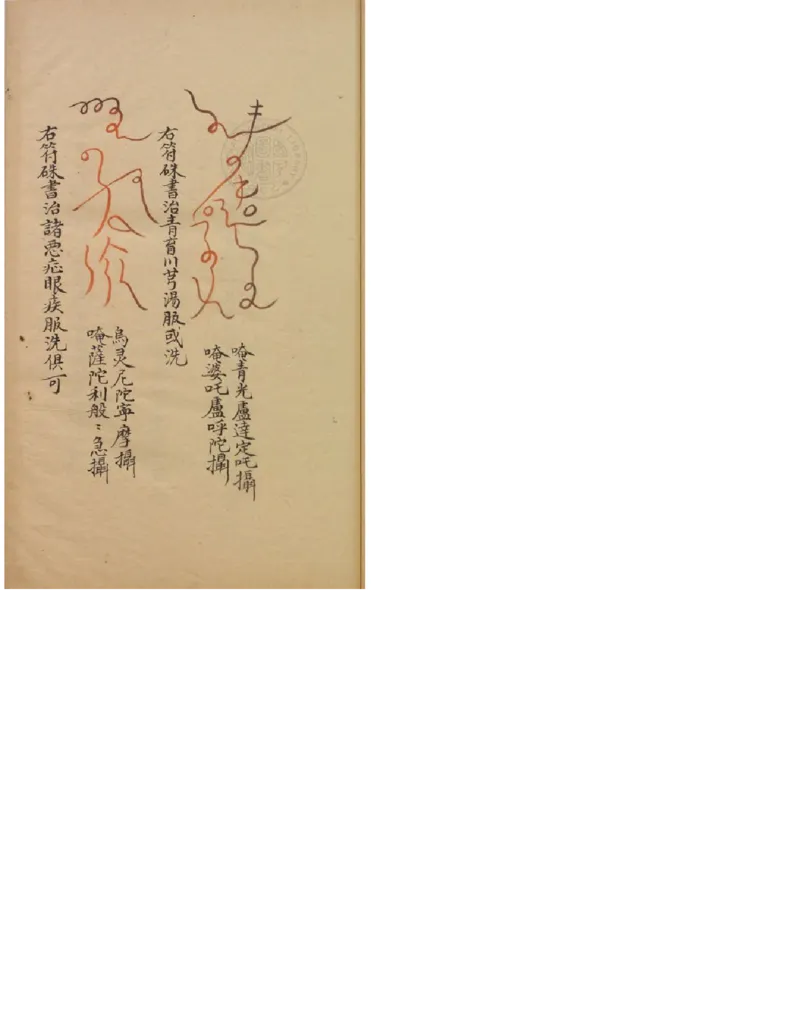 唵青光盧達定吒攝
唵婆吒盧呼陀攝
右符硃書治青盲川芎湯服或洗
烏灵尼陀寧摩攝
唵薩陀利般〻急攝
右符硃書治諸惡症眼疾服洗俱可